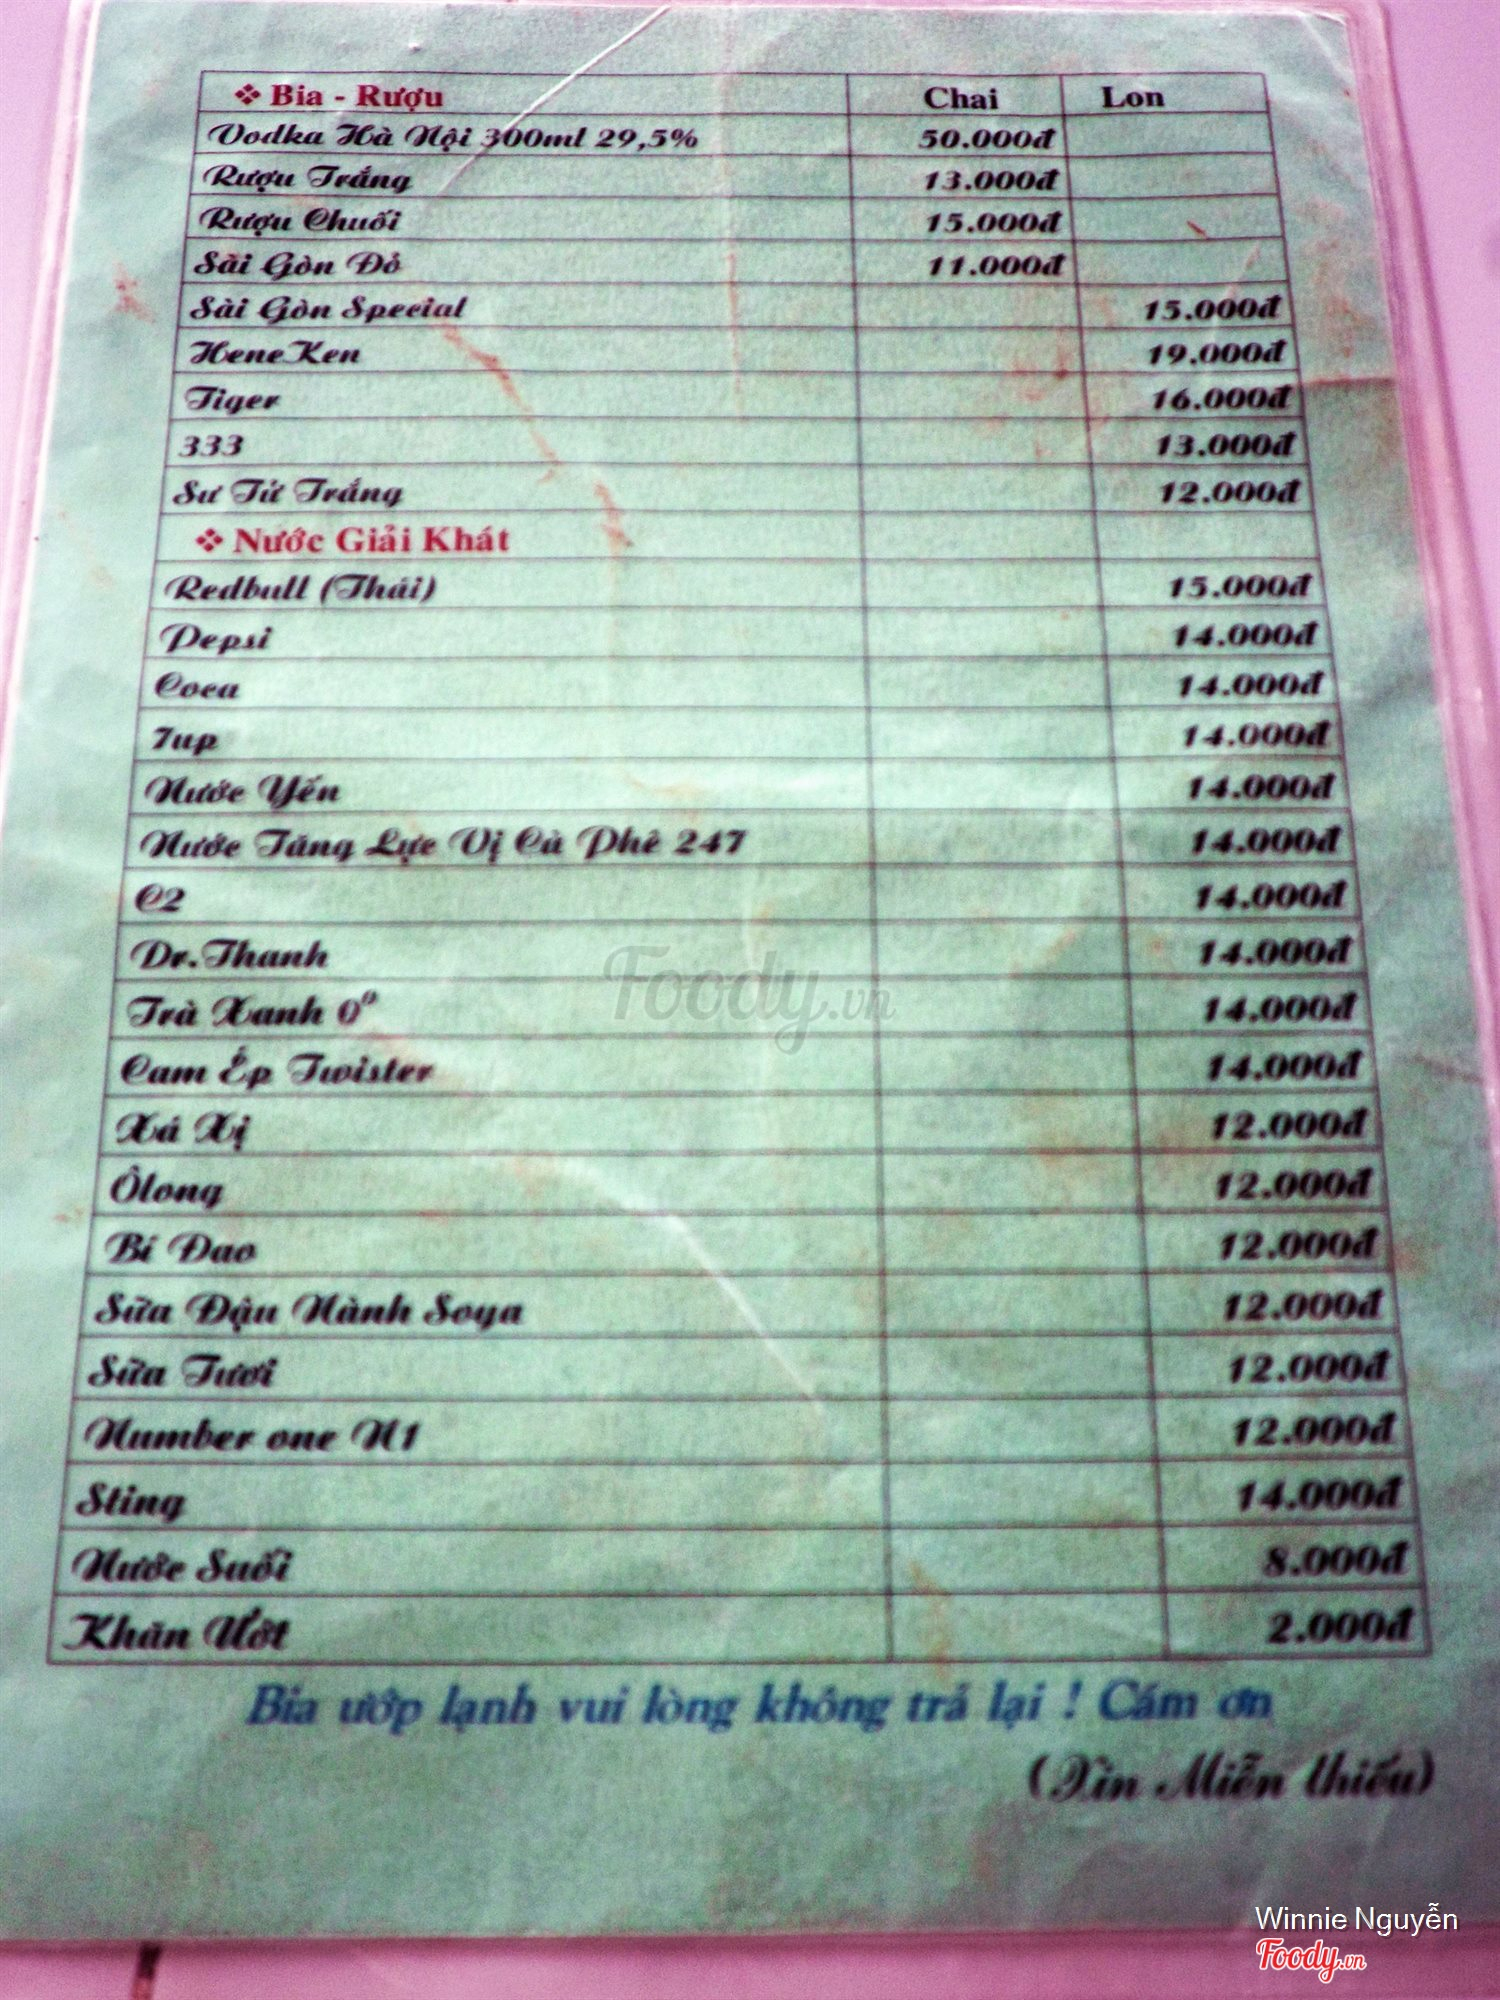 ❖ Bia - Rượu Chai Lon
Vodka Hà Nội 300ml 29,5% 50.000đ
Rượu Trắng 13.000đ
Rượu Chuối 15.000đ
Sài Gòn Đỏ 11.000đ
Sài Gòn Special 15.000đ
HeneKen 19.000đ
Tiger 16.000đ
333 13.000đ
Sư Tử Trắng 12.000đ
❖ Nước Giải Khát
Redbull (Thái) 15.000đ
Pepsi 14.000đ
Coca 14.000đ
7up 14.000đ
Nước Yến 14.000đ
Nước Tăng Lực Vị Cà Phê 247 14.000đ
C2 14.000đ
Dr.Thanh 14.000đ
Trà Xanh 0⁰ 14.000đ
Cam Ép Twister 14.000đ
Xá Xị 12.000đ
Ôlong 12.000đ
Bí Đao 12.000đ
Sữa Đậu Nành Soya 12.000đ
Sữa Tươi 12.000đ
Number one N1 12.000đ
Sting 14.000đ
Nước Suối 8.000đ
Khăn Ướt 2.000đ
Bia ướp lạnh vui lòng không trả lại ! Cám ơn
(Xin Miễn thiếu)
Foody.vn
Winnie Nguyễn
Foody.vn